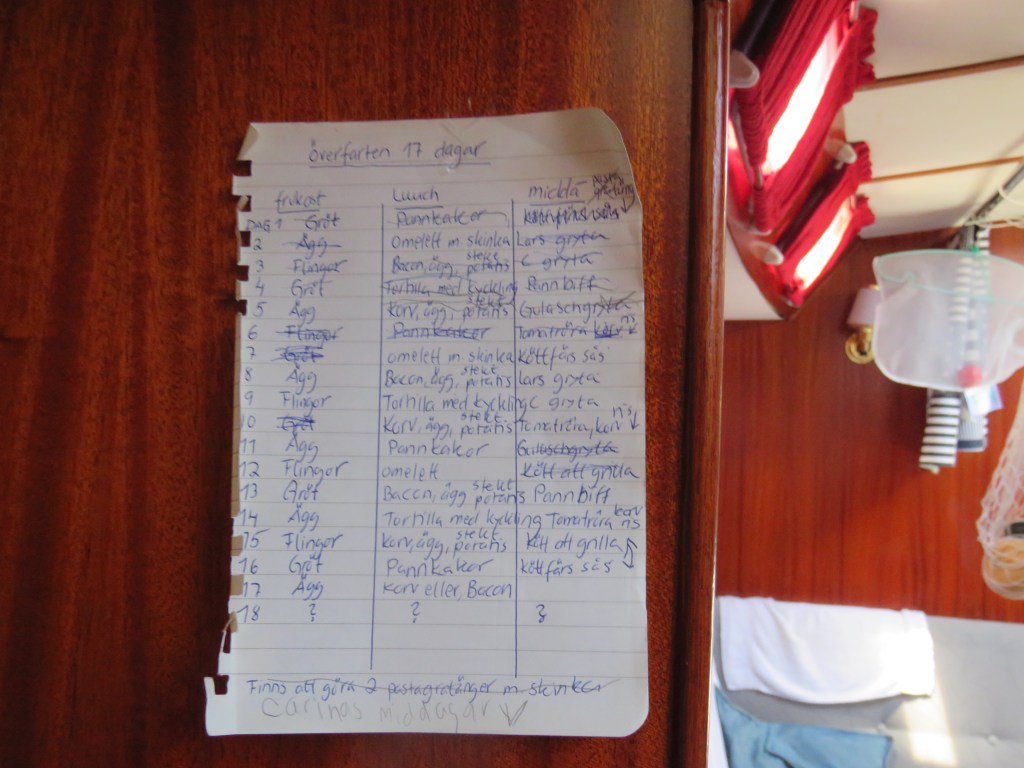 överfarten 17 dagar
frukost Luuch middá
DAG 1 Gröt Pannkakor Köttfärssås
2 Ägg omelett m. skinka Lars gryta
3 Flingor Bacon, ägg, stekt potatis C gryta
4 Gröt Tortilla med kyckling Pannbiff
5 Ägg Korv, ägg, stekt potatis Gulaschgryta
6 Flingor Pannkakor Tomatröra korv ris
7 Gröt omelett m. skinka Köttfärs sås
8 Ägg Bacon, ägg, stekt potatis Lars gryta
9 Flingor Tortilla med kyckling C gryta
10 Gröt Korv, ägg, stekt potatis Tomatröra, korv ris
11 Ägg Pannkakor Gulaschgryta
12 Flingor omelett Kött att grilla
13 Gröt Bacon, ägg stekt potatis Pannbiff
14 Ägg Tortilla med kyckling Tomatröra korv ris
15 Flingor Korv, ägg, stekt potatis Kött att grilla
16 Gröt Pannkakor Köttfärs sås
17 Ägg Korv eller, Bacon
18 ? ? ?
Finns att göra 2 pastagratänger m. skinka
Carinas middagar